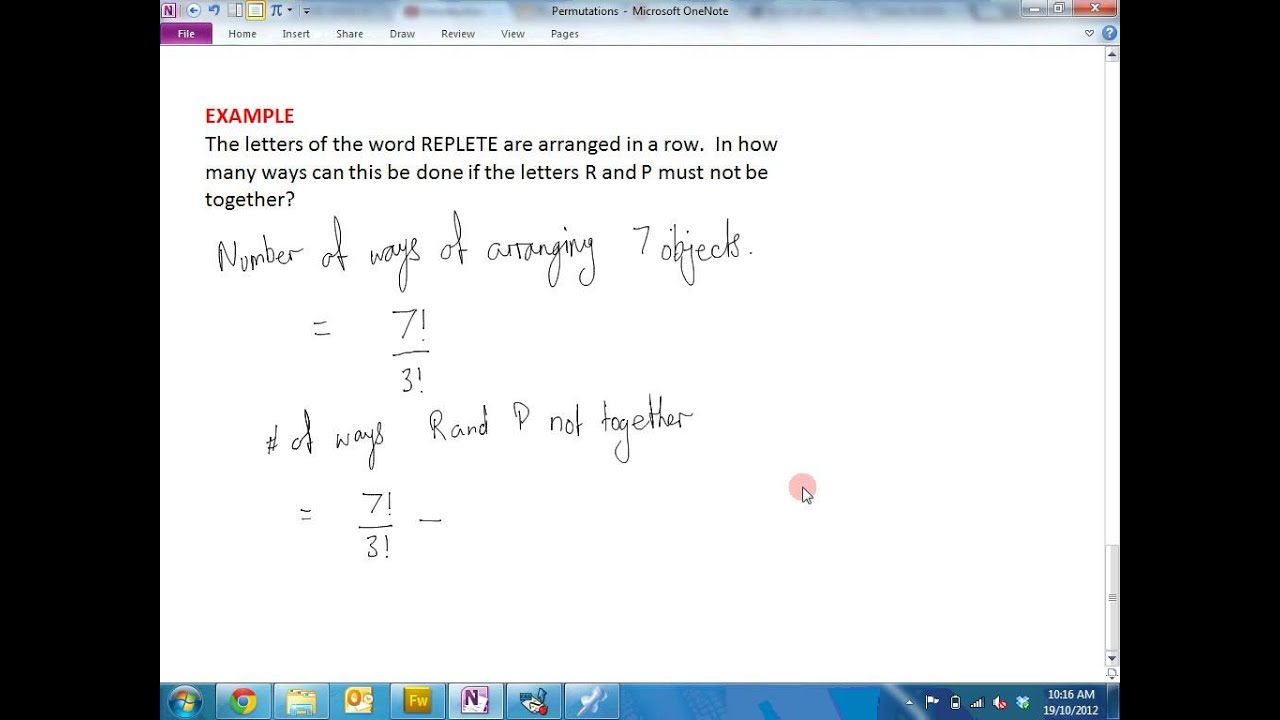 Permutations - Microsoft OneNote
File Home Insert Share Draw Review View Pages
EXAMPLE
The letters of the word REPLETE are arranged in a row. In how
many ways can this be done if the letters R and P must not be
together?
Number of ways of arranging 7 objects.
= 7!
3!
# of ways R and P not together
= 7! -
3!
10:16 AM
19/10/2012